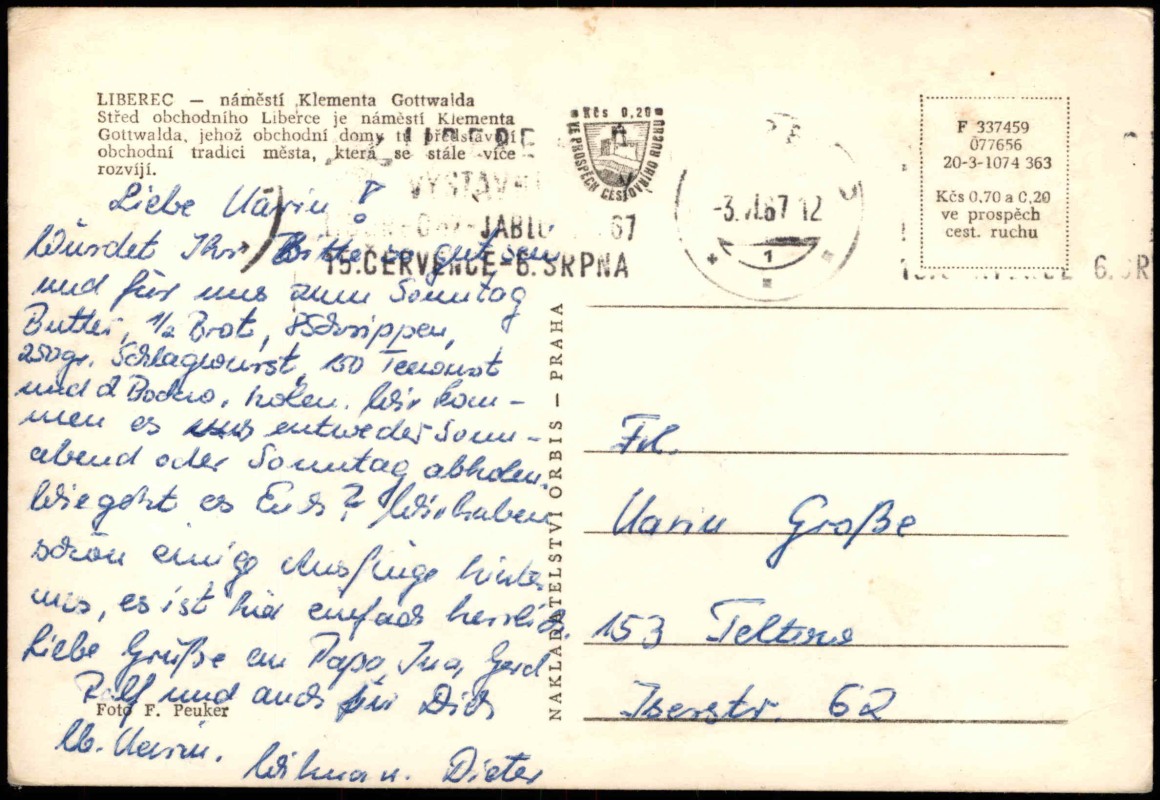 LIBEREC — náměstí Klementa Gottwalda
Střed obchodního Liberce je náměstí Klementa
Gottwalda, jehož obchodní domy tu představují
obchodní tradici města, která se stále více
rozvíjí.
Liebe Karin!
Würdet Ihr Bitte so gut sein
und für uns zum Sonntag
Butter, 1/2 Brot, 8 Schrippen,
250gr. Schlagwurst, 150 Teewurst
und 2 holen. Wir kom-
men es entweder Sonn-
abend oder Sonntag abholen.
Wie geht es Euch? Wir haben
schön einige Ausflüge hinter
uns, es ist hier einfach herrlich.
Liebe Grüße an Papa, Ina, Gerd
Rolf und auch für Dich
lb. Karin.
Wilma u. Dieter
Foto F. Peuker
NAKLADATELSTVÍ ORBIS — PRAHA
Kčs 0,20
VE PROSPĚCH CESTOVNÍHO RUCHU
LIBERE
VÝSTAV
JABLO 67
15.ČERVENCE-6.SRPNA
-3.VI.67 12
1
F 337459
077656
20-3-1074 363
Kčs 0,70 a 0,20
ve prospěch
cest. ruchu
6.SR
Frl.
Karin Große
153 Teltow
Iserstr. 62